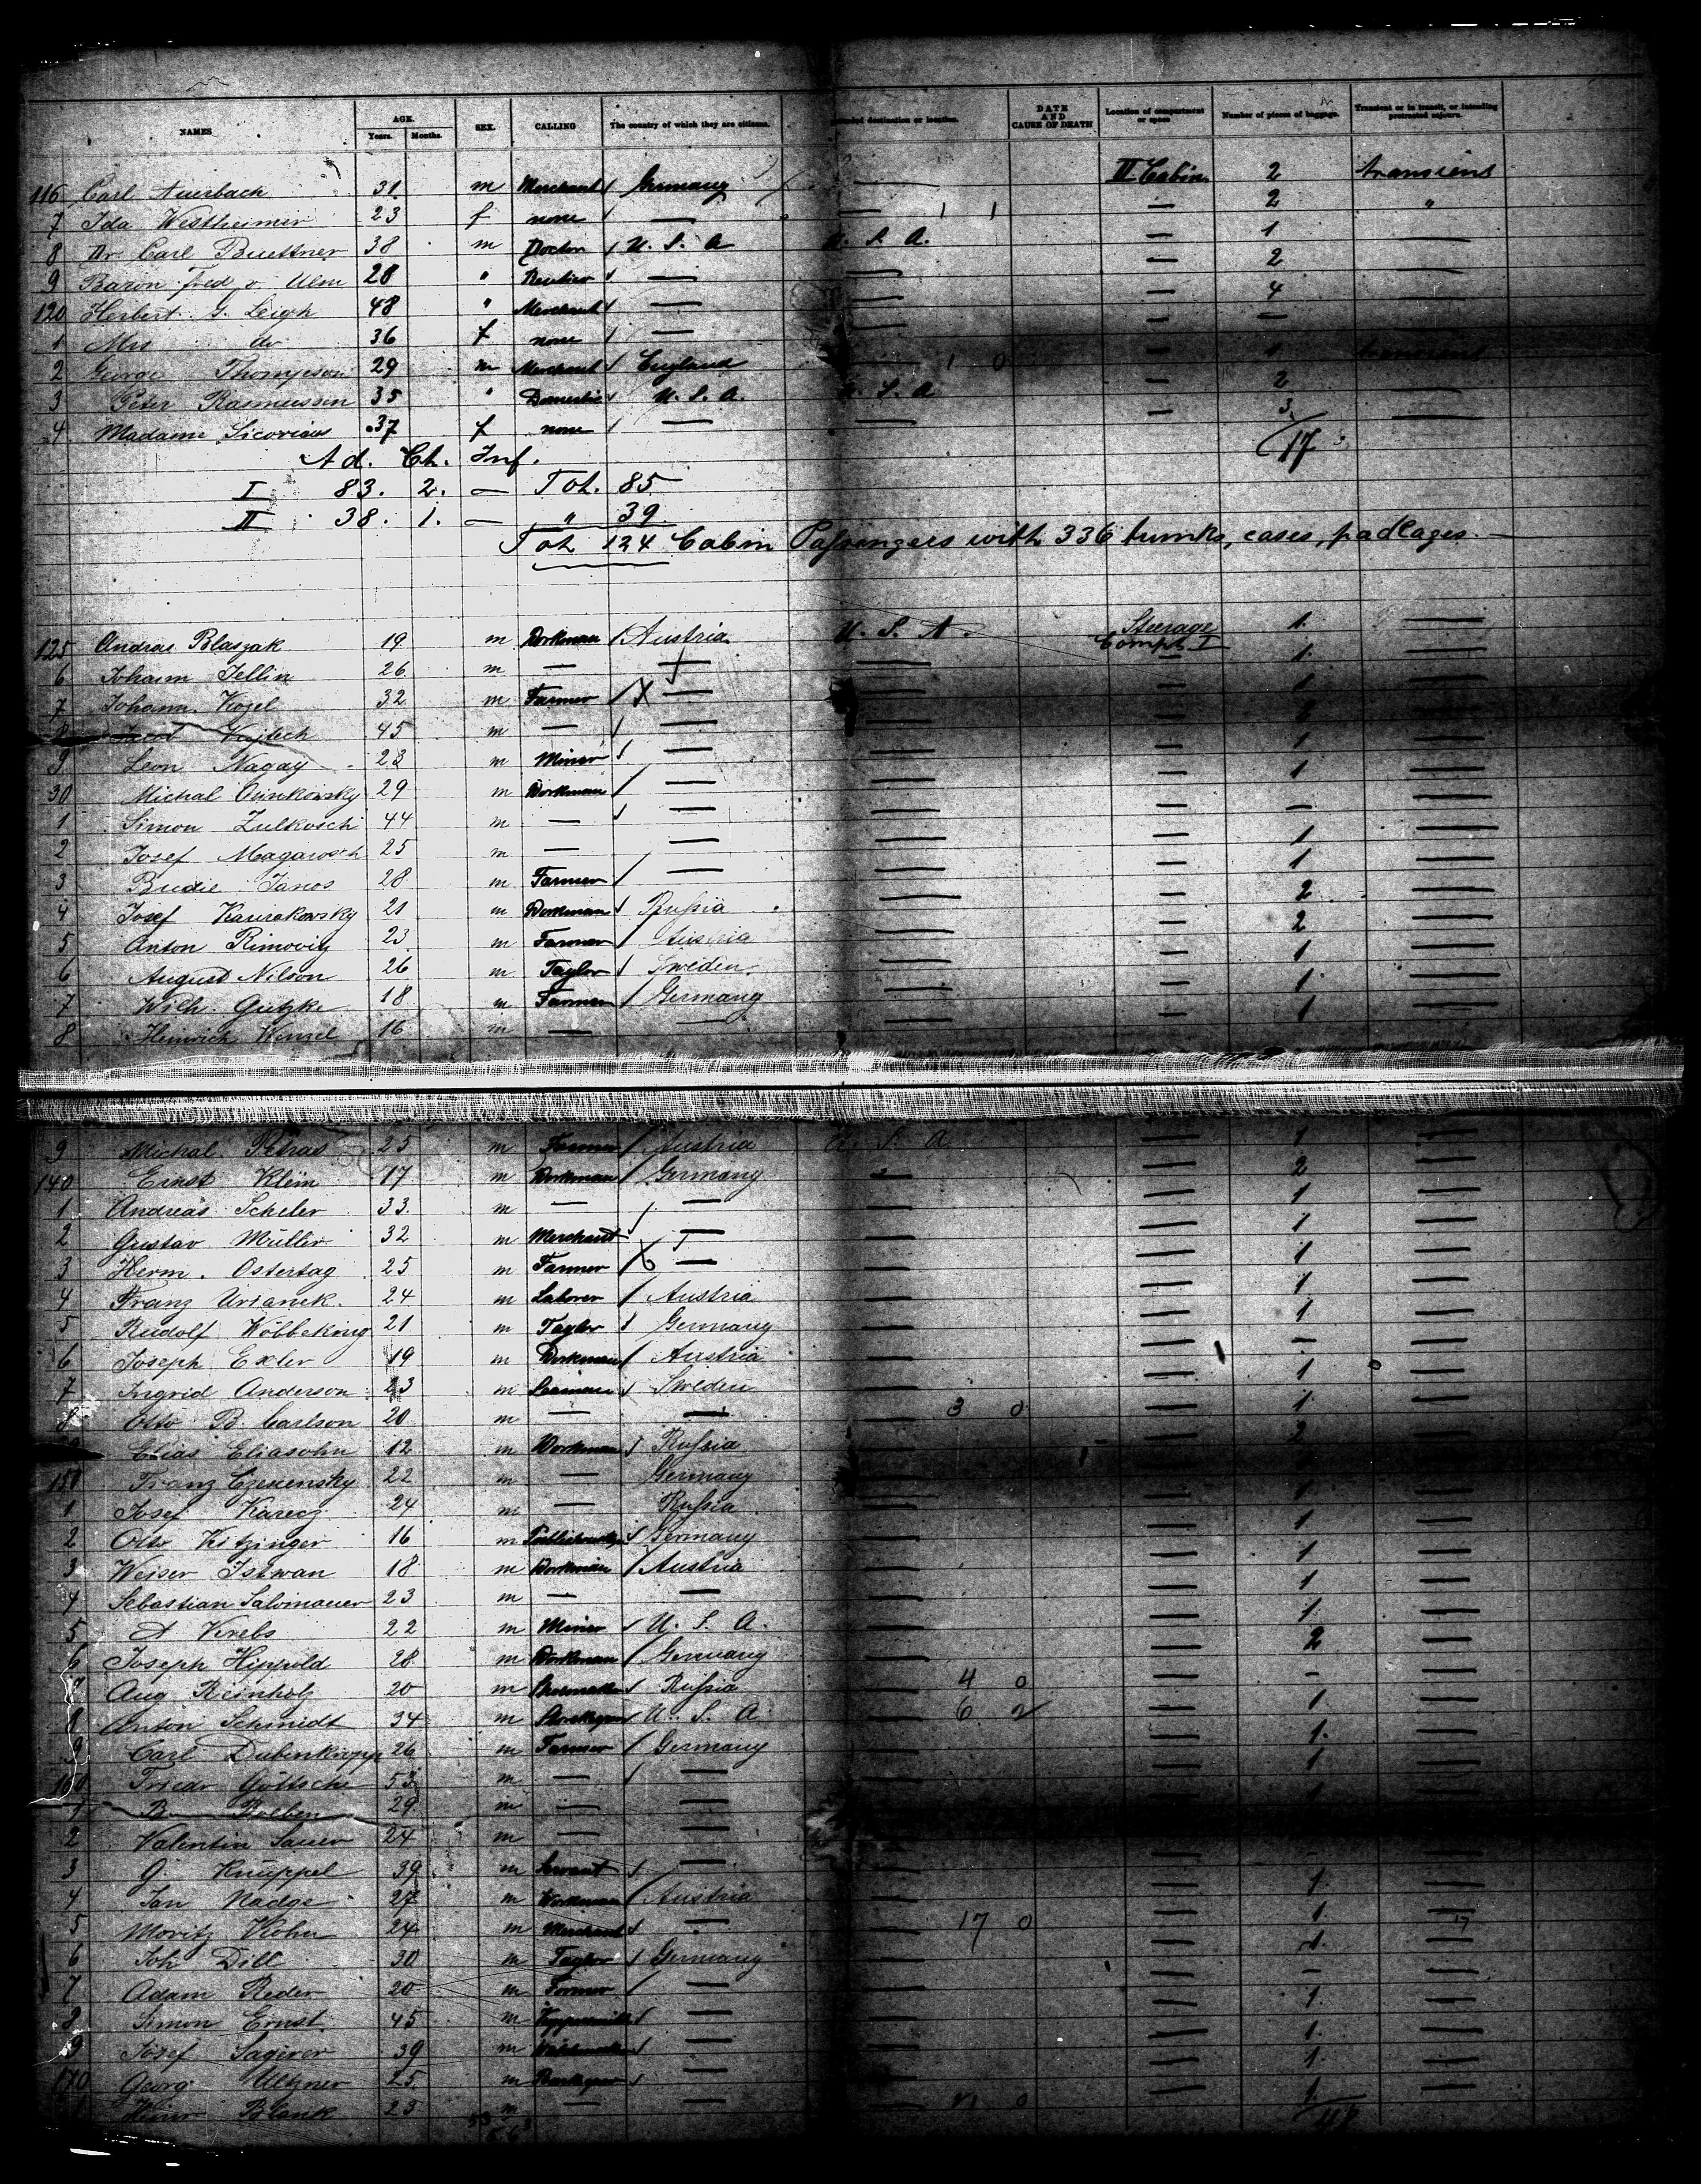 NAMES AGE. Years. Months. SEX. CALLING The country of which they are citizens. destination or location. DATE AND CAUSE OF DEATH Location of compartment or space Number of pieces of baggage. Transient or in transit, or intending protracted sojourn.
116 Carl Auerbach 31 m Merchant Germany — II Cabin 2 transient
7 Ida Westheimer 23 f none — — 1 1 — 2 "
8 Dr. Carl Buettner 38 m Doctor U. S. A U. S. A. — 1 —
9 Baron fred v. Ulm 28 " Rentier — — — 2 —
120 Herbert G. Leigh 48 " Merchant — — — 4
1 Mrs do 36 f none — — — —
2 George Thompson 29 m Merchant England 1 0 — 1 transient
3 Peter Rasmussen 35 " Domestic U. S. A. U. S. A — 2 —
4 Madame 37 f none — — — 3 —
Ad. Ch. Inf. 17
I 83. 2. — Tot. 85
II 38. 1. — " 39
Tot 124 Cabin Passengers with 336 trunks, cases, packages. —
125 Andras Blaszak 19 m Workman Austria U. S. A. Steerage Compt I 1. —
6 Johann Jellin 26 m — — — — 1. —
7 Johann Kozel 32 m Farmer X — — — 1 —
Vojtech 45 m — — — —
9 Leon Nagay 23 m Miner — — — 1 —
30 Michal 29 m Workman — — — 1 —
1 Simon Zulkosch 44 m — — — — — —
2 Josef Magarosch 25 m — — — — 1 —
3 Budie Janos 28 m Farmer — — — 1 —
4 Josef 21 m Workman Russia — — 2 —
5 Anton Rimovitz 23 m Farmer Austria — — 2 —
6 August Nilson 26 m Taylor Sweden — — 1 —
7 Wilh. Gutzke 18 m Farmer Germany — — 1 —
8 Heinrich Wenzel 16 m — — — — 1 —
9 Michal Petras 25 m Farmer Austria U. S. A — 1 —
140 Ernst Klein 17 m Workman Germany — — 2 —
1 Andreas Scheler 33. m — — — — 1 —
2 Gustav Müller 32 m Merchant — — — 1 —
3 Herm. Ostertag 25 m Farmer — — — 1 —
4 Franz Urianek. 24 m Laborer Austria — — 1 —
5 Rudolf Wöbbeking 21 m Taylor Germany — — 1 —
6 Joseph Exler 19 m Workman Austria — — — —
7 Ingrid Anderson 23 m Seaman Sweden — — 1 —
8 Otto B. Carlson 20 m — — — 3 0 — 1. —
Elias Eliasohn 12 m Workman Russia — — 2 —
150 Franz 22 m — Germany — —
1 Josef Karecz 24 m — Russia — — 1 —
2 Otto Kitzinger 16 m Germany — — 1 —
3 Weiser Istwan 18 m Workman Austria — — 1 —
4 Sebastian Salomauer 23 m — — — — 1 —
5 A Krebs 22 m Miner U. S. A. — — 1 —
6 Joseph Hippold 28 m Workman Germany — — 2 —
7 Aug Reinholz 20 m Shoemaker Russia — 4 0 — — —
8 Anton Schmidt 34 m U. S. A. — 6 2 — 1 —
9 Carl Dubenkropp 26 m Farmer Germany — — 1. —
160 Friedr Göttsche 53 m — — — — 1 —
1 B. Roeben 29 m — — — — 1 —
2 Valentin Sauer 24 m — —
3 G. Knüppel 39 m Servant — — — — —
4 Jan Nadge 27 m Workman Austria — — 1 —
5 Moritz Kohn 24 m Merchant — — 17 0 — 1 — 17
6 Joh Dill 30 m Taylor Germany — — 1 —
7 Adam Reder 20 m Farmer — — — — —
8 Simon Ernst 45 m — — — 1 —
9 Josef Sagerer 39 m — — — 1. —
170 Georg Ultzner 25 m — — — 1. —
Blank 23 m — — — 21 0 — 1 —
48